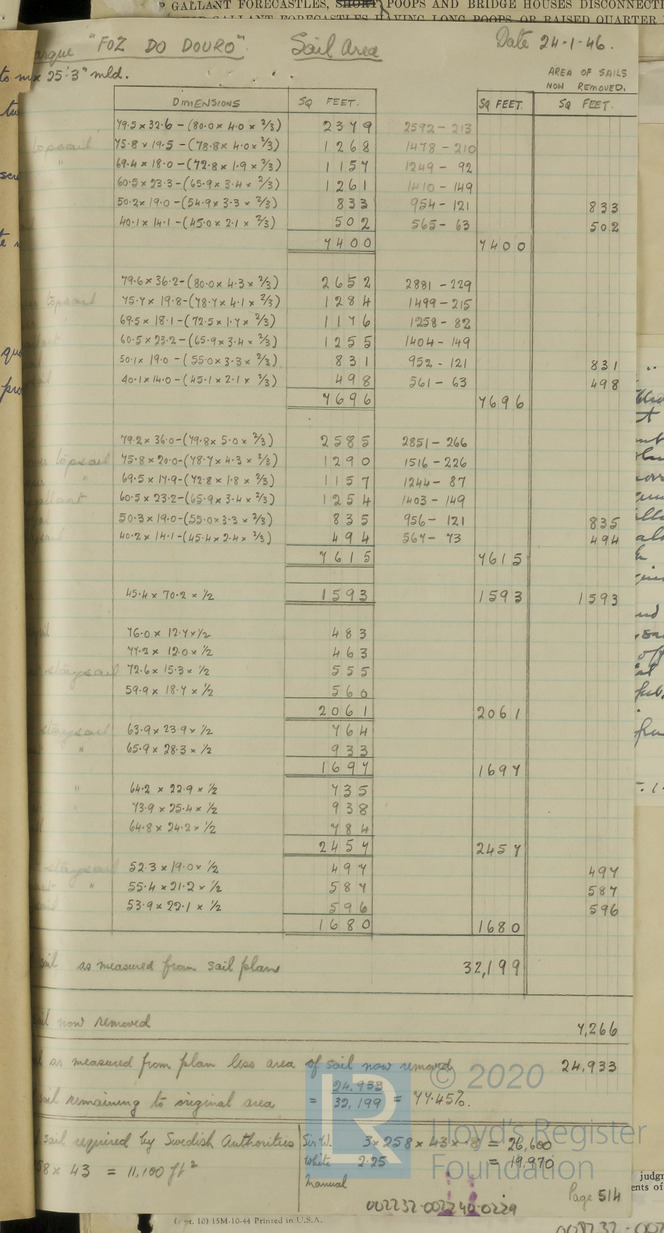 P GALLANT FORECASTLES, SHORT POOPS AND BRIDGE HOUSES DISCONNECTI
GALLANT FORECASTLES HAVING LONG POOPS OR RAISED QUARTER
arque "FOZ DO DOURO" Sail Area Date 24-1-46.
25'.3" mld.
AREA OF SAILS NOW REMOVED.
DIMENSIONS SQ FEET. SQ FEET. SQ FEET.
79.5 x 32.6 - (80.0 x 4.0 x 2/3) 2379 2592 - 213
topsail 75.8 x 19.5 - (78.8 x 4.0 x 2/3) 1268 1478 - 210
" 69.4 x 18.0 - (72.8 x 1.9 x 2/3) 1157 1249 - 92
60.5 x 23.3 - (65.9 x 3.4 x 2/3) 1261 1410 - 149
50.2 x 19.0 - (54.9 x 3.3 x 2/3) 833 954 - 121 833
40.1 x 14.1 - (45.0 x 2.1 x 2/3) 502 565 - 63 502
7400 7400
79.6 x 36.2 - (80.0 x 4.3 x 2/3) 2652 2881 - 229
topsail 75.7 x 19.8 - (78.7 x 4.1 x 2/3) 1284 1499 - 215
69.5 x 18.1 - (72.5 x 1.7 x 2/3) 1176 1258 - 82
60.5 x 23.2 - (65.9 x 3.4 x 2/3) 1255 1404 - 149
50.1 x 19.0 - (55.0 x 3.3 x 2/3) 831 952 - 121 831
40.1 x 14.0 - (45.1 x 2.1 x 2/3) 498 561 - 63 498
7696 7696
79.2 x 36.0 - (79.8 x 5.0 x 2/3) 2585 2851 - 266
topsail 75.8 x 20.0 - (78.7 x 4.3 x 2/3) 1290 1516 - 226
" 69.5 x 17.9 - (72.8 x 1.8 x 2/3) 1157 1244 - 87
60.5 x 23.2 - (65.9 x 3.4 x 2/3) 1254 1403 - 149
50.3 x 19.0 - (55.0 x 3.3 x 2/3) 835 956 - 121 835
40.2 x 14.1 - (45.4 x 2.4 x 2/3) 494 567 - 73 494
7615 7615
45.4 x 70.2 x 1/2 1593 1593 1593
76.0 x 12.7 x 1/2 483
77.2 x 12.0 x 1/2 463
staysail 72.6 x 15.3 x 1/2 555
59.9 x 18.7 x 1/2 560
2061 2061
staysail 63.9 x 23.9 x 1/2 764
" 65.9 x 28.3 x 1/2 933
1697 1697
" 64.2 x 22.9 x 1/2 735
73.9 x 25.4 x 1/2 938
64.8 x 24.2 x 1/2 784
2457 2457
staysail 52.3 x 19.0 x 1/2 497 497
" 55.4 x 21.2 x 1/2 587 587
53.9 x 22.1 x 1/2 596 596
1680 1680
as measured from sail plans 32,199
now removed 7,266
as measured from plan less area of sail now removed 24,933
sail remaining to original area = 24,933 / 32,199 = 77.45%.
© 2020
Lloyd's Register
Foundation
sail required by Swedish Authorities
58 x 43 = 11,100 ft²
3 x 258 x 43 x .8 = 26,600
White 2.25 = 19,970
Manual
002232-002240-0229
Page 514
10) 15M-10-44 Printed in U.S.A.
judgm
ents of